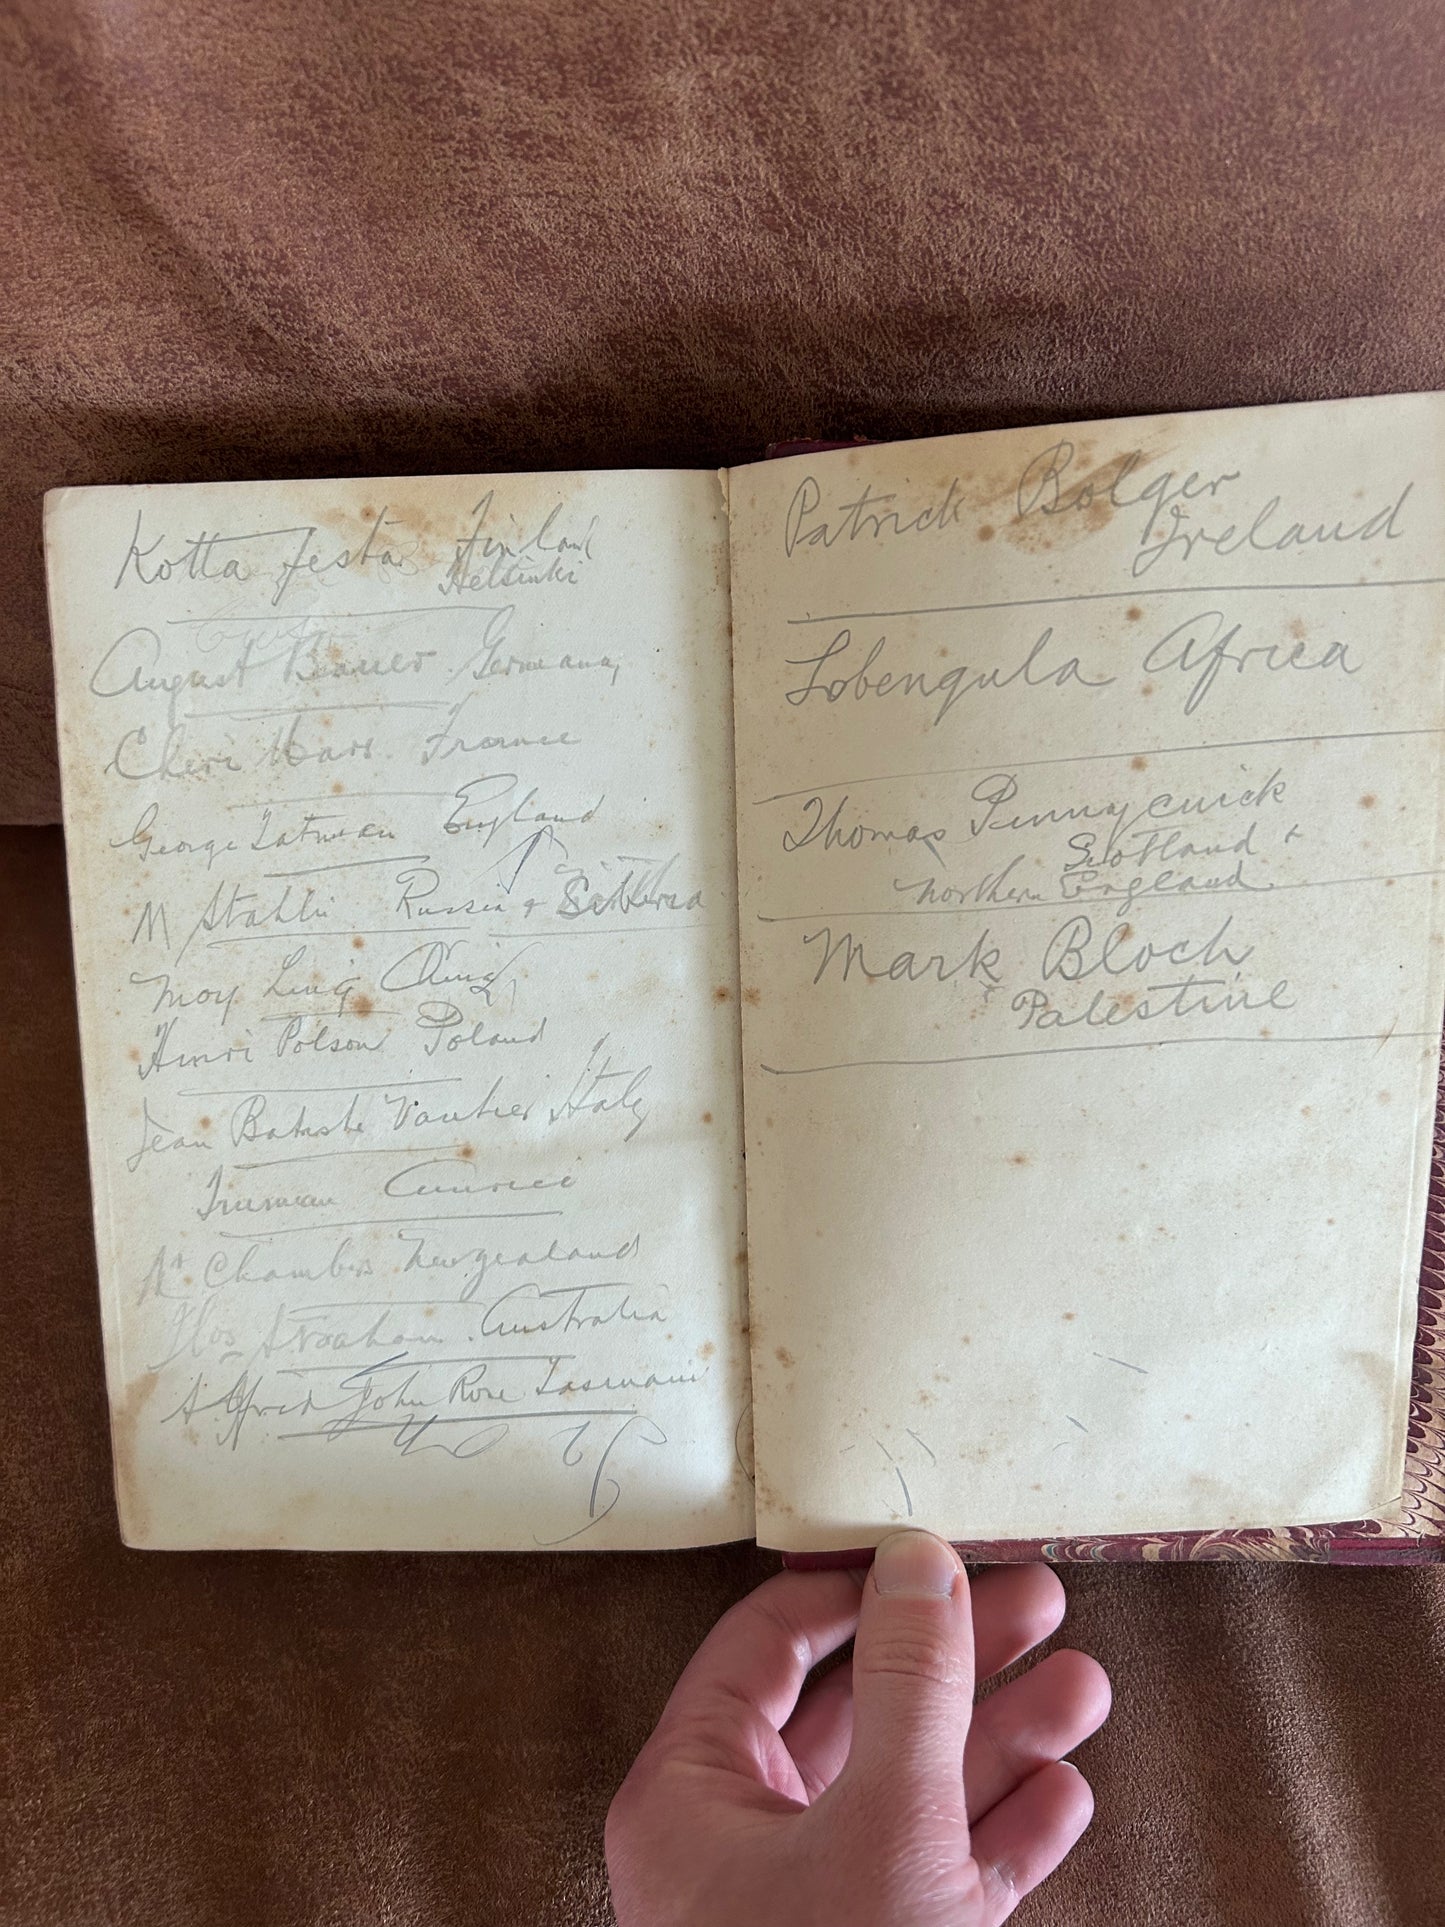 Kotta Festa Finland
Helsinki
August Bauer Germany
Cheri Mars France
George Tatman England
M Stahlin Russia &
Moy Ling
Henri Polson Poland
Jean Batiste Vautier Italy
Truman
Mr Chambers Newzealand
Thos Abraham Australia
Alfrid John Rose Tasmani
Patrick Bolger
Ireland
Lobengula Africa
Thomas Pennycuick
Scotland +
Northern England
Mark Bloch
Palestine